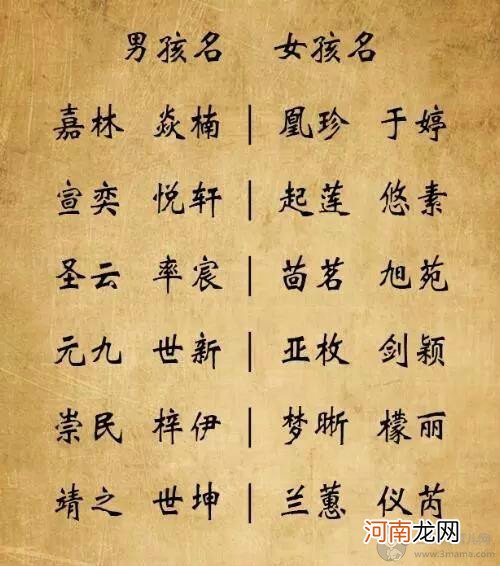 男孩名 女孩名
嘉林 焱楠 | 凰珍 于婷
宣奕 悦轩 | 起莲 悠素
圣云 率宸 | 茴茗 旭苑
元九 世新 | 亚枚 剑颖
崇民 梓伊 | 梦晰 檬丽
靖之 世坤 | 兰蕙 仪芮
河南龙网
www.3mama.com